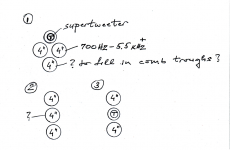 ①
supertweeter
T
4" 4" 700Hz - 5,5 kHz +
4" ? to fill in comb troughs?
② ③
4" 4"
? 4" T
4" 4"